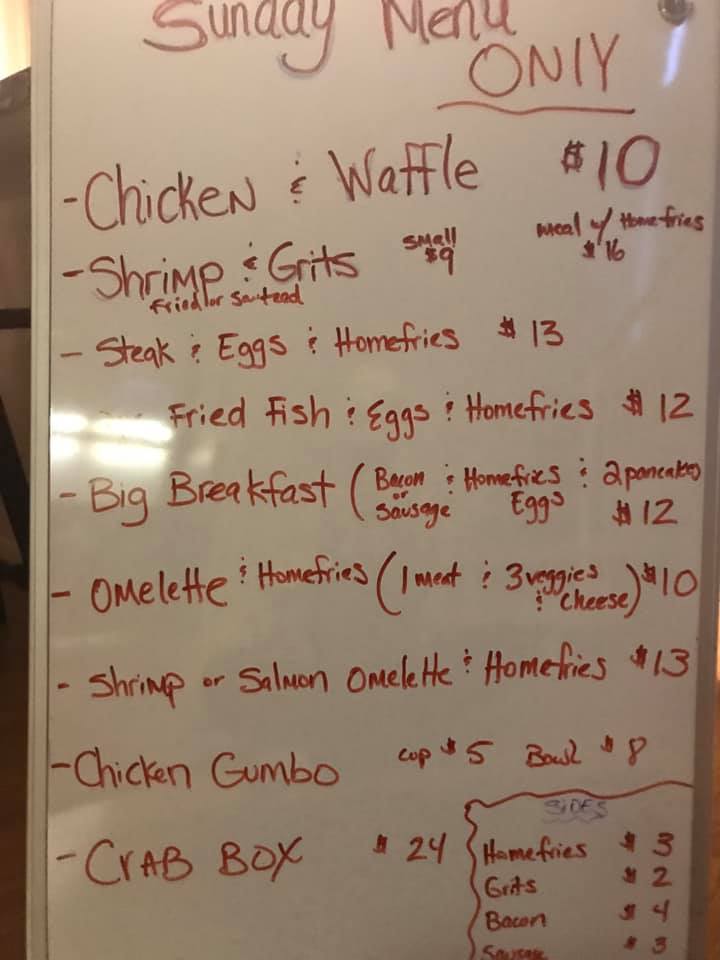 Sunday Menu
ONlY
- Chicken & Waffle $10
- Shrimp & Grits small $9 meal w/ Homefries $16
Fried or Sautead
- Steak & Eggs & Homefries $13
Fried Fish & Eggs & Homefries $12
- Big Breakfast (Bacon or Sausage & Homefries & 2 pancakes
Eggs $12
- Omelette & Homefries (1 meat & 3 veggies & Cheese) $10
- Shrimp or Salmon Omelette & Homefries $13
- Chicken Gumbo cup $5 Bowl $8
- CRAB BOX $24
SIDES
Homefries $3
Grits $2
Bacon $4
Sausage $3